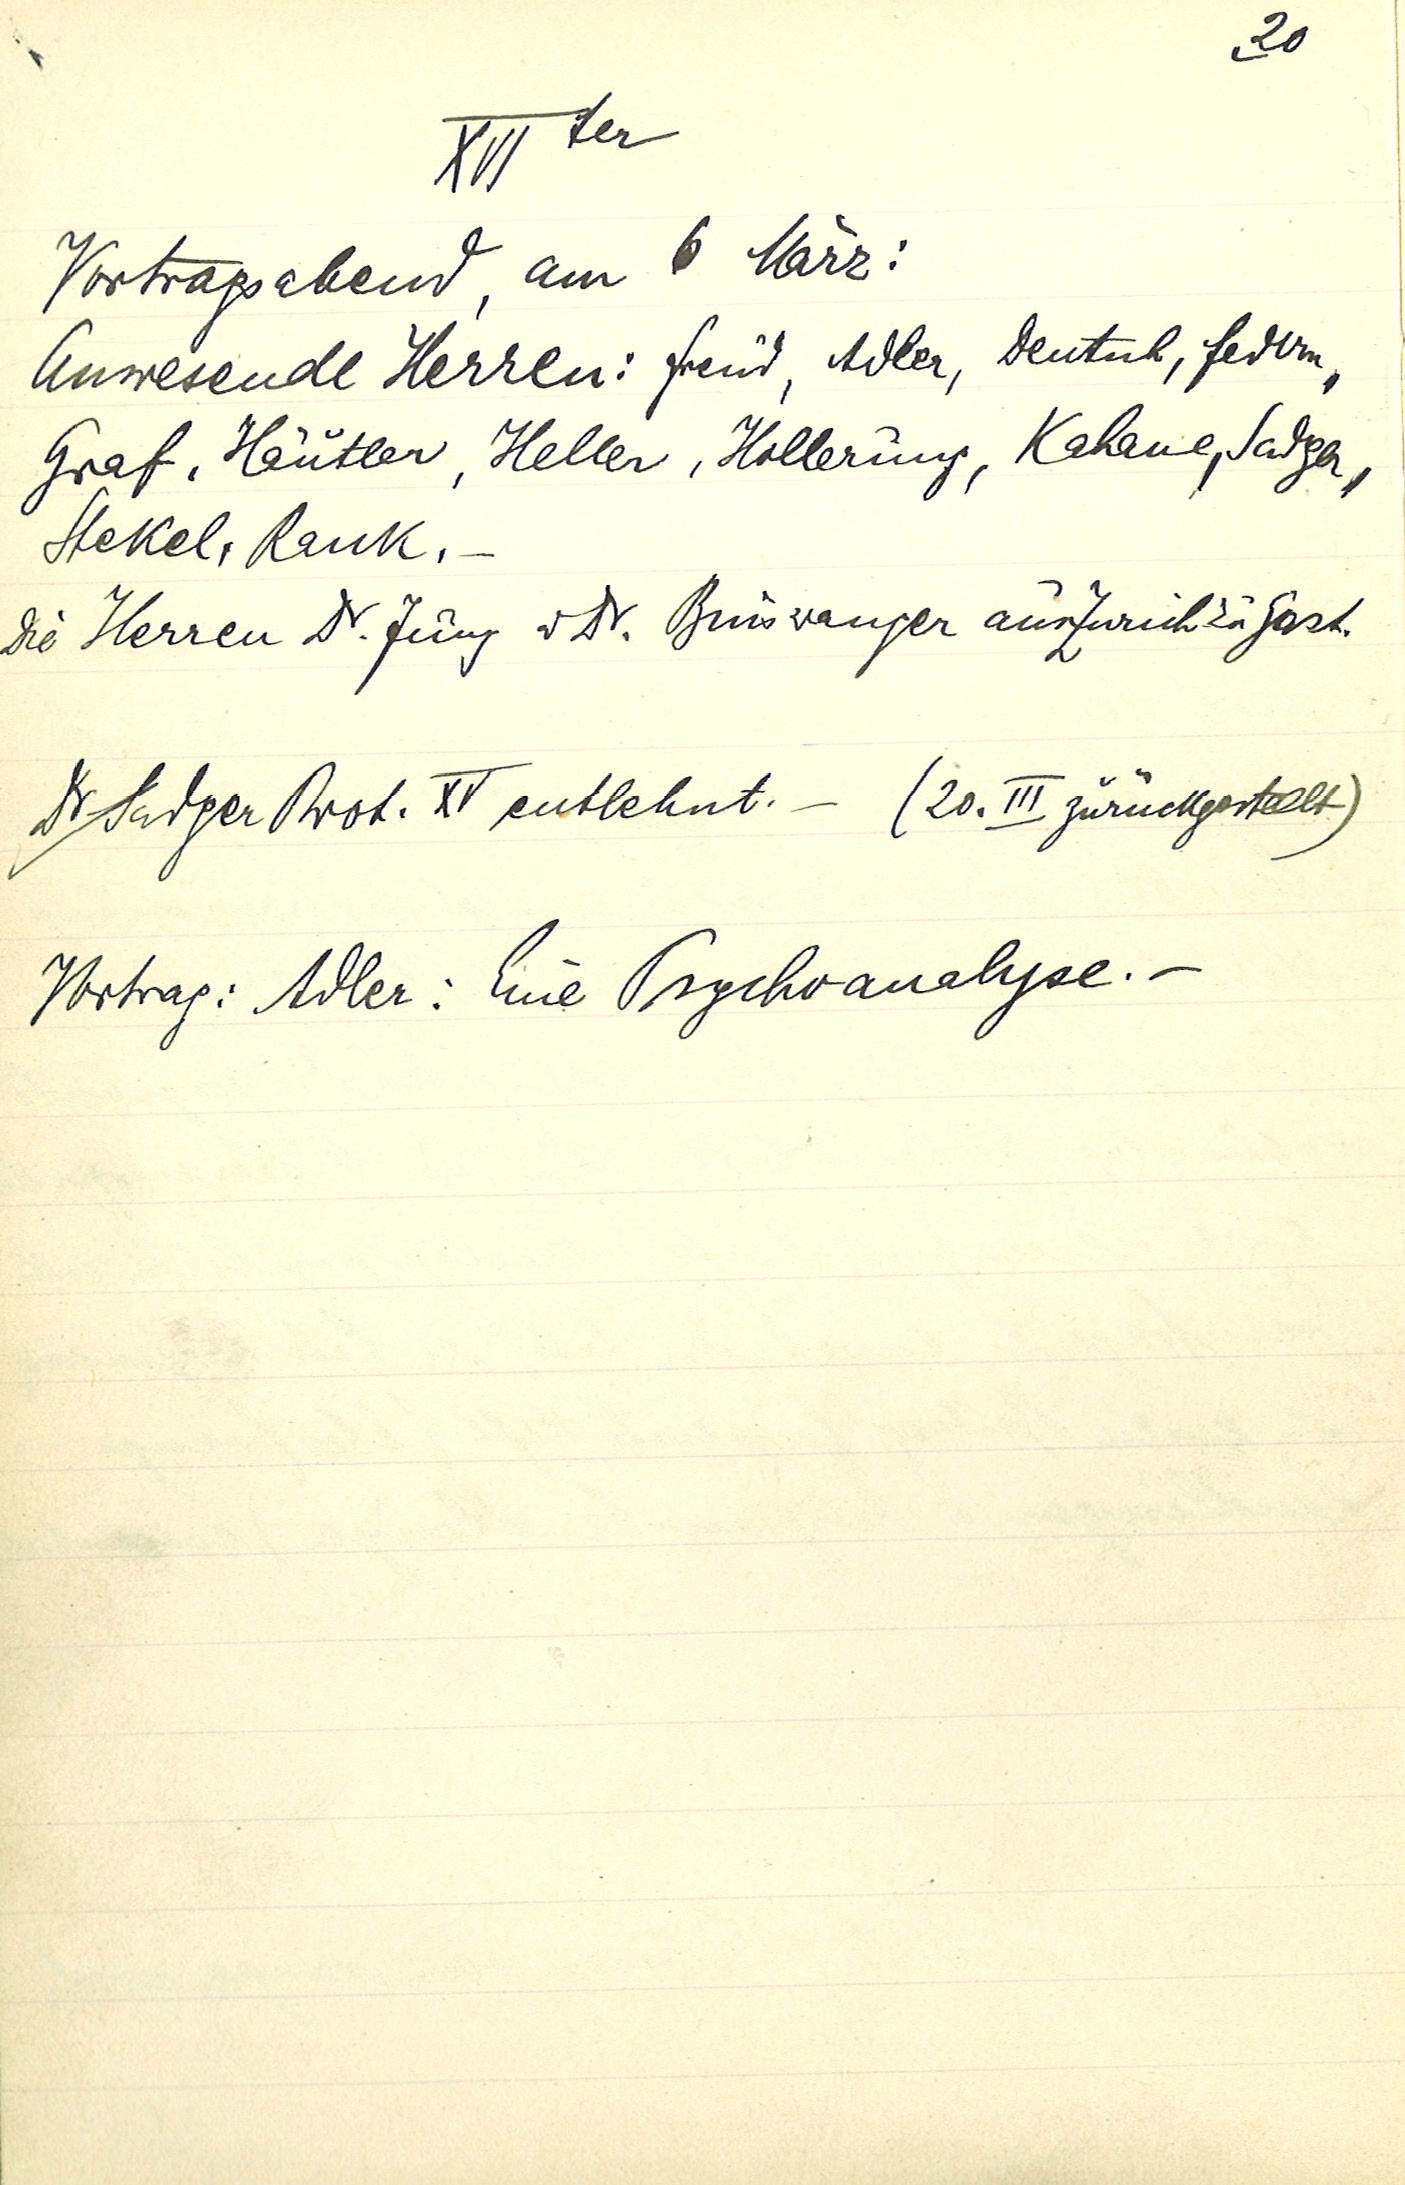 20
XVI ter
Vortragsabend, am 6 März:
Anwesende Herren: Freud, Adler, Deutsch, Federn,
Graf, Häutler, Heller, Hollerung, Kahane, Sadger,
Stekel, Rank. –
Die Herren Dr. Jung u Dr. Binswanger aus Zürich zu Gast.
Dr Sadger Prot. XV entlehnt. – (20. III zurückgestellt)
Vortrag: Adler: Eine Psychoanalyse. –